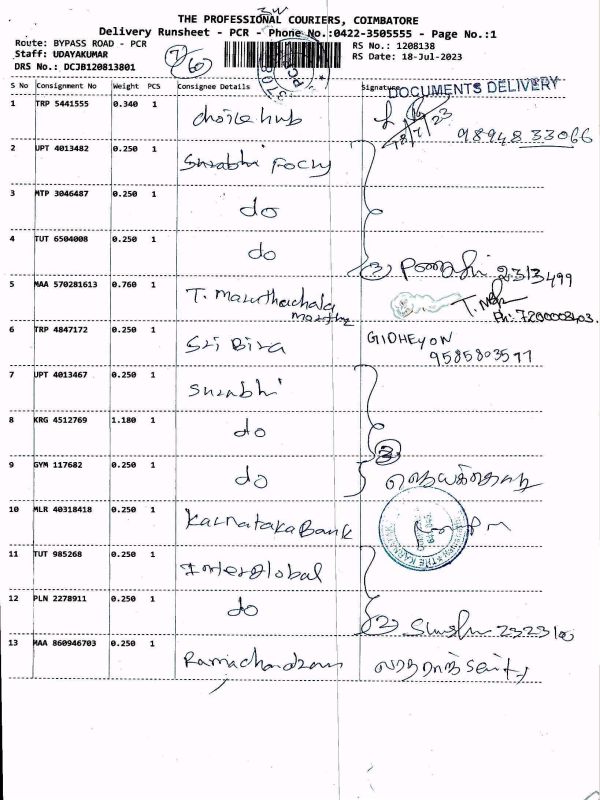 THE PROFESSIONAL COURIERS, COIMBATORE
Delivery Runsheet - PCR - Phone No.:0422-3505555 - Page No.:1
Route: BYPASS ROAD - PCR
Staff: UDAYAKUMAR
DRS No.: DCJB120813801
RS No.: 1208138
RS Date: 18-Jul-2023
S No Consignment No Weight PCS Consignee Details Signature
DOCUMENTS DELIVERY
1 TRP 5441555 0.340 1 choice hub
18/7/23
98948 33066
2 UPT 4013482 0.250 1 Surabhi Focus
3 MTP 3046487 0.250 1 do
4 TUT 6504008 0.250 1 do
2313499
5 MAA 570281613 0.760 1 T. Maruthachala
Ph: 7200008403.
6 TRP 4847172 0.250 1 Sri Biza GIDHEYON
9585803577
7 UPT 4013467 0.250 1 Surabhi
8 KRG 4512769 1.180 1 do
9 GYM 117682 0.250 1 do
10 MLR 40318418 0.250 1 Karnataka Bank
11 TUT 985268 0.250 1 Interglobal
12 PLN 2278911 0.250 1 do
13 MAA 860946703 0.250 1 Ramachandran